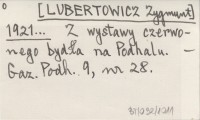 [LUBERTOWICZ Zygmunt]
1921... Z wystawy czerwo-
nego bydła na Podhalu. -
Gaz. Podh. 9, nr 28.